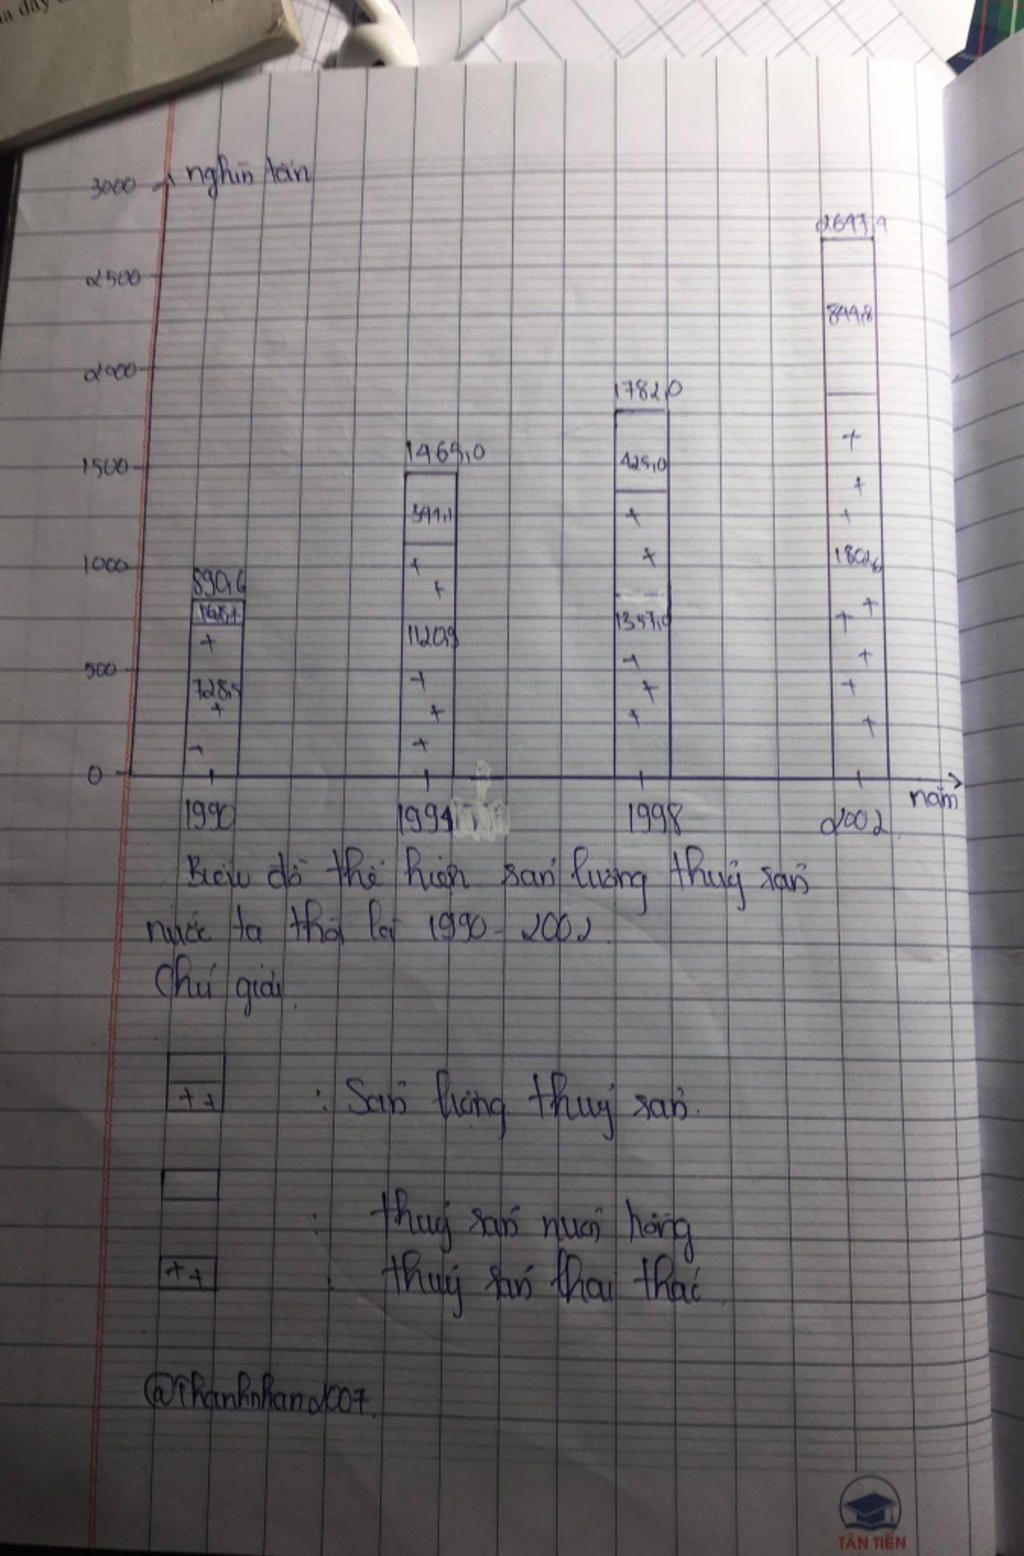 nghìn tấn
3000
2500
2000
1500
1000
500
0
890,6
728,5
1465,0
344,1
1120,9
1782,0
425,0
1357,0
2647,4
844,8
1802,6
năm
1990
1994
1998
2002
Biểu đồ thể hiện sản lượng thuỷ sản
nước ta thời 1990-2002.
Chú giải
: Sản lượng thuỷ sản.
: thuỷ sản nuôi
: thuỷ sản khai thác
@Thanhnhan2007.
TÂN TIẾN